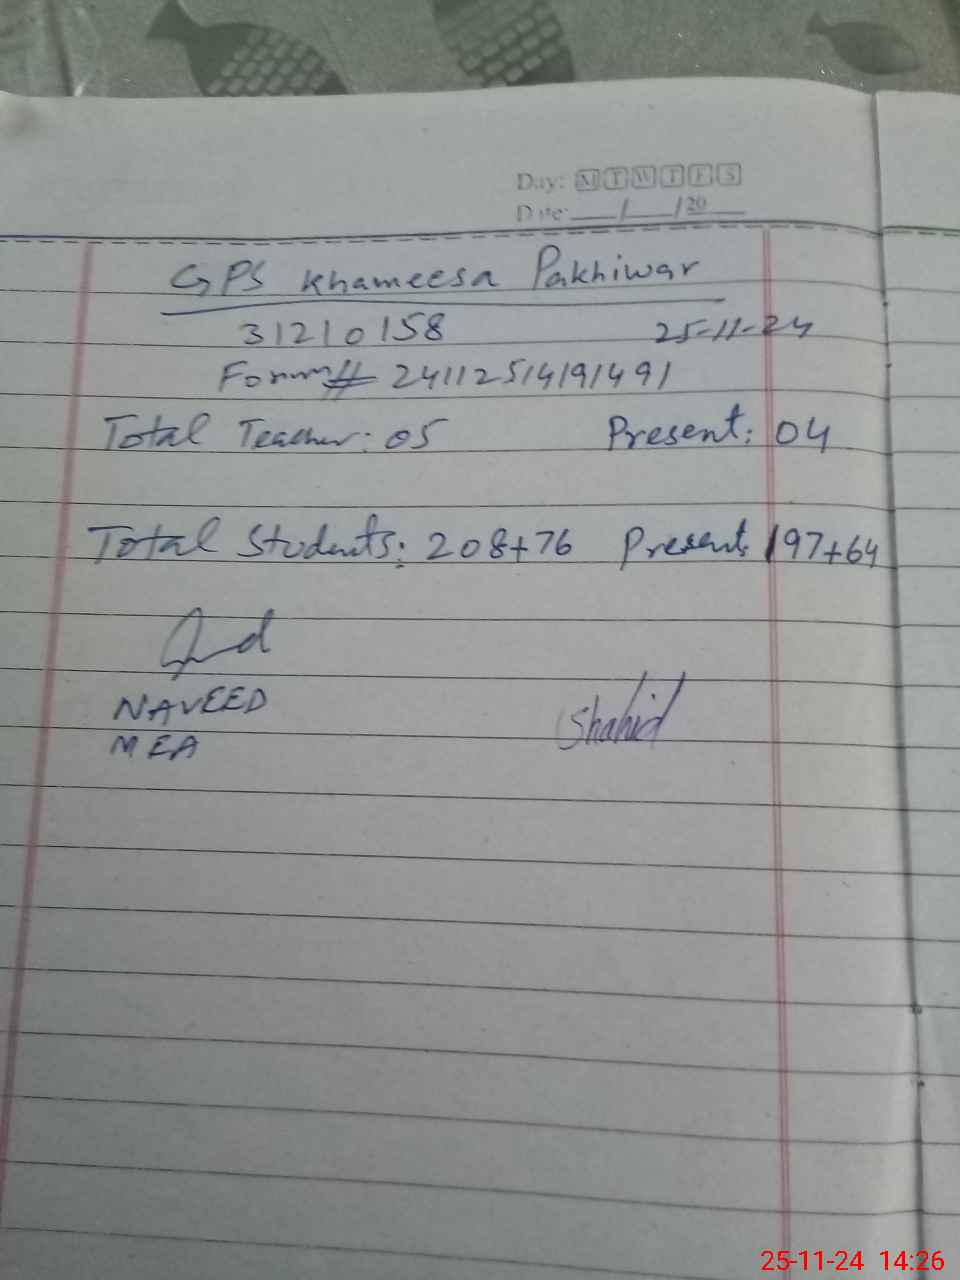 Day: M T W T F S
Date: ___/___/20___
GPS Khameesa Pakhiwar
31210158 25-11-24
Form# 24112514191491
Total Teacher: 05 Present: 04
Total Students: 208+76 Present: 197+64
NAVEED
MEA
Shahid
25-11-24 14:26